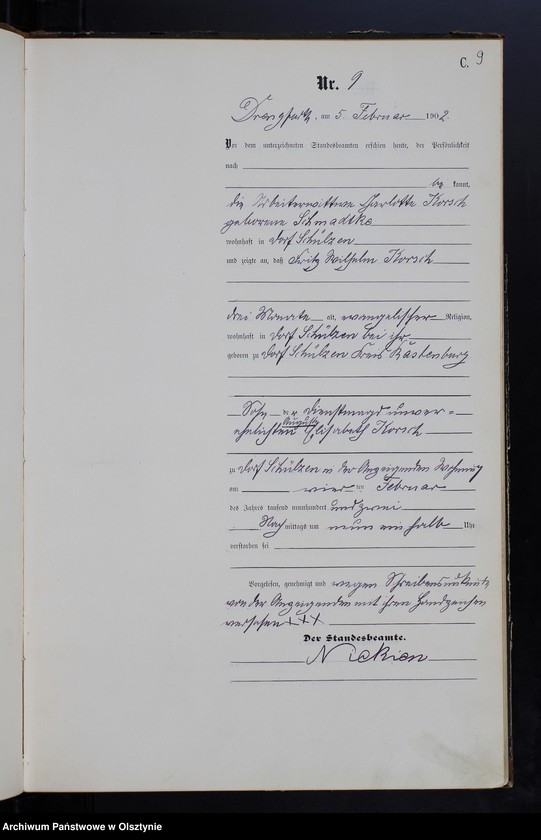 C. 9
Nr. 9
Drengfurth, am 5. Februar 1902.
Vor dem unterzeichneten Standesbeamten erschien heute, der Persönlichkeit
nach
be kannt,
die Arbeiterwittwe Charlotte Korsch
geborene Schmadtke
wohnhaft in Dorf Schülzen
und zeigte an, daß Fritz Wilhelm Korsch
drei Monate alt, evangelischer Religion,
wohnhaft in Dorf Schülzen bei ihr
geboren zu Dorf Schülzen Kreis Rastenburg
Sohn der Dienstmagd unver-
Auguste
ehelichten Elisabeth Korsch
zu Dorf Schülzen in der Anzeigenden Wohnung
am vier ten Februar
des Jahres tausend neunhundert und zwei
Nach mittags um neun ein halb Uhr
verstorben sei
Vorgelesen, genehmigt und wegen Schreibensunkunde
von der Anzeigenden mit ihren Handzeichen
versehen +++
Der Standesbeamte.
Archiwum Państwowe w Olsztynie